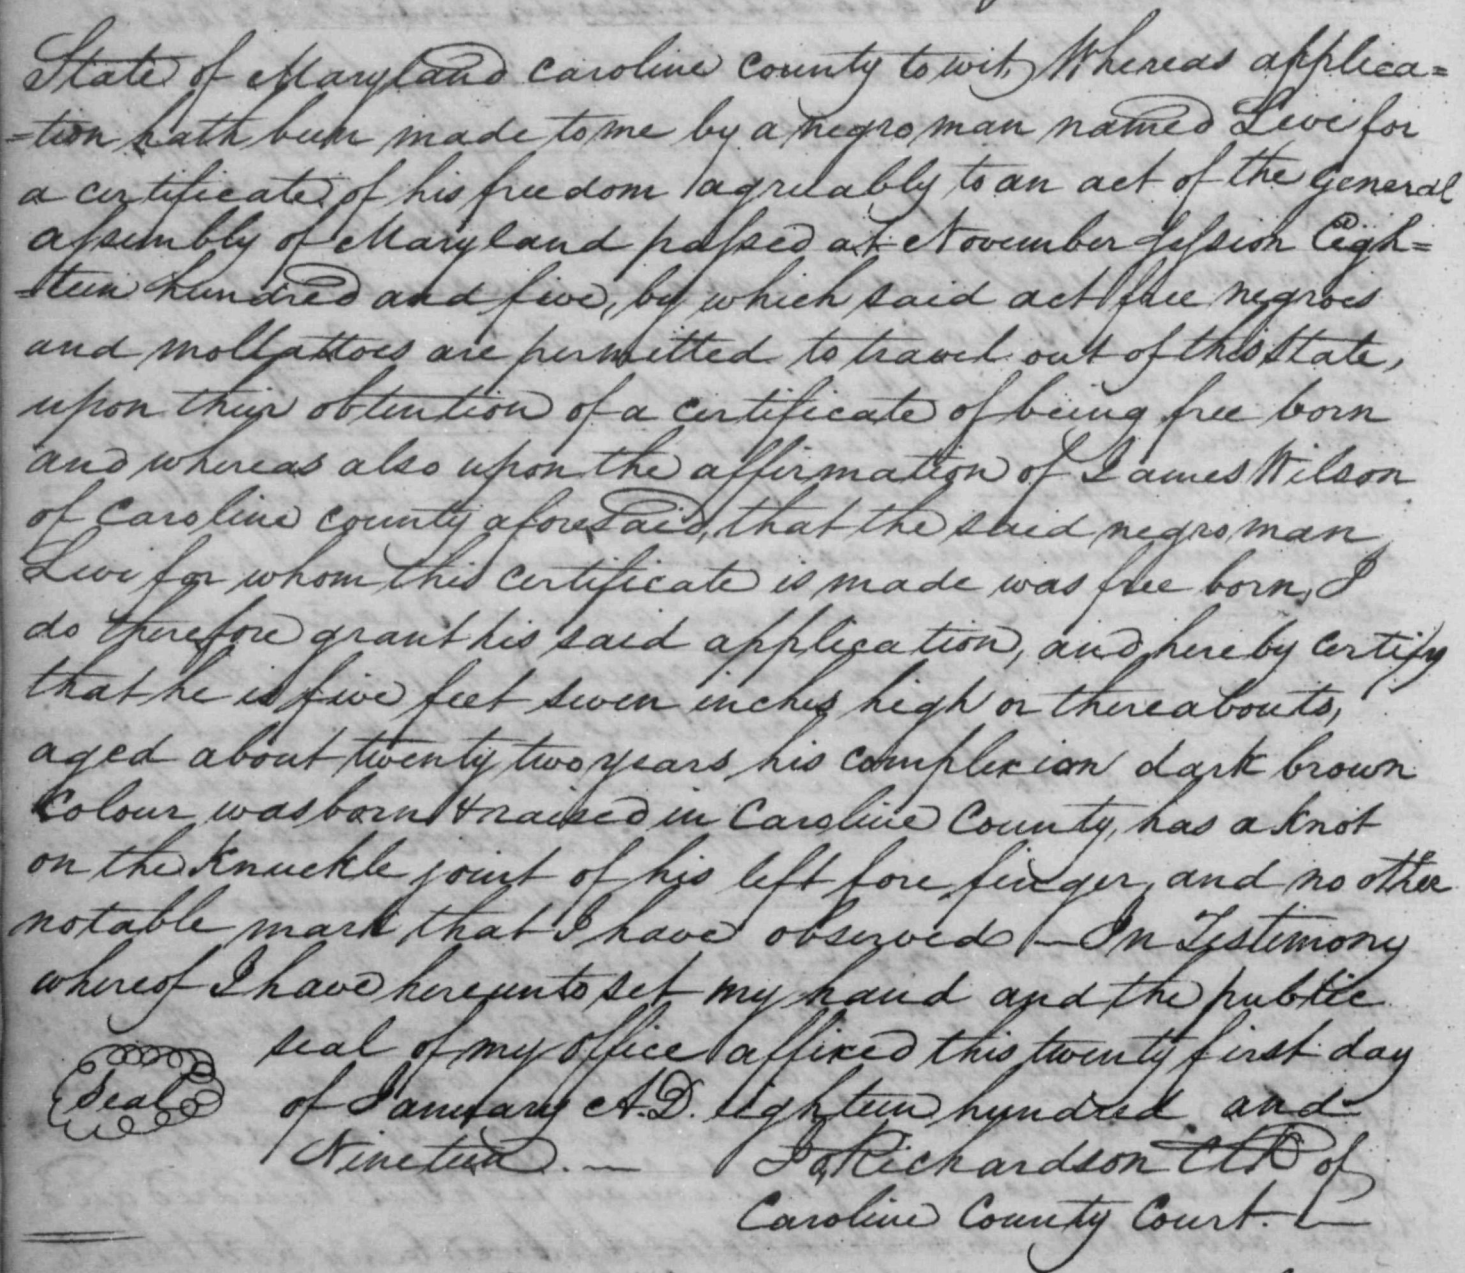 State of Maryland Caroline County to wit, Whereas applica=
=tion hath been made to me by a negro man named Levi for
a certificate of his freedom agreeably to an act of the General
assembly of Maryland passed at November Session Eigh=
=teen hundred and five, by which said act free negroes
and mollattoes are permitted to travel out of this State,
upon their obtention of a certificate of being free born
and whereas also upon the affirmation of James Wilson
of Caroline county aforesaid, that the said negro man
Levi for whom this certificate is made was free born, I
do therefore grant his said application, and hereby certify
that he is five feet seven inches high or thereabouts,
aged about twenty two years, his complexion dark brown
Colour was born & raised in Caroline County, has a knot
on the Knuckle joint of his left fore finger, and no other
notable mark that I have observed — In Testimony
whereof I have hereunto set my hand and the public
seal of my office affixed this twenty first day
Seal of January A.D. eighteen hundred and
Nineteen. — Jo Richardson Clk of
Caroline County Court. —